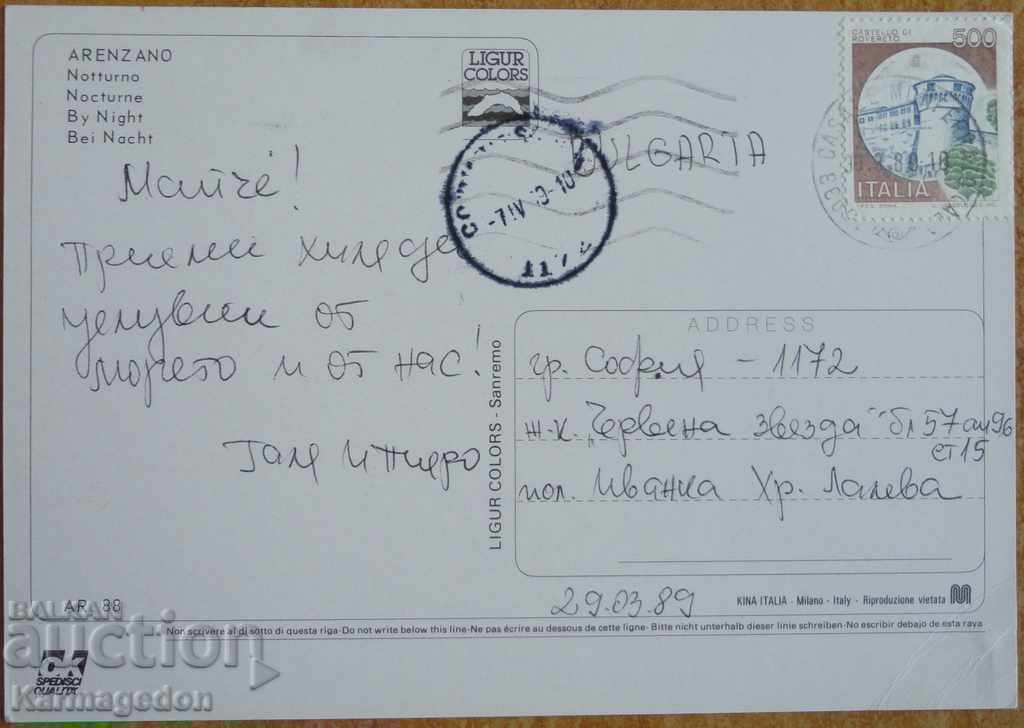 ARENZANO
Notturno
Nocturne
By Night
Bei Nacht
LIGUR
COLORS
CASTELLO DI
ROVERETO
500
ITALIA
BULGARIA
-7.IV
Майче!
Приеми хиляди
целувки от
морето и от нас!
Галя и Пиеро
LIGUR COLORS - Sanremo
ADDRESS
гр. София - 1172
ж.к. „Червена звезда" бл 57 ап 96
ет 15
пол. Иванка Хр. Лалева
29.03.89
AR. 88
KINA ITALIA - Milano - Italy - Riproduzione vietata
Non scrivere al di sotto di questa riga-Do not write below this line-Ne pas écrire au dessous de cette ligne- Bitte nicht unterhalb dieser linie schreiben-No escribir debajo de esta raya
SPEDISCI
QUALITÀ
BALKAN
auction
Karmagedon